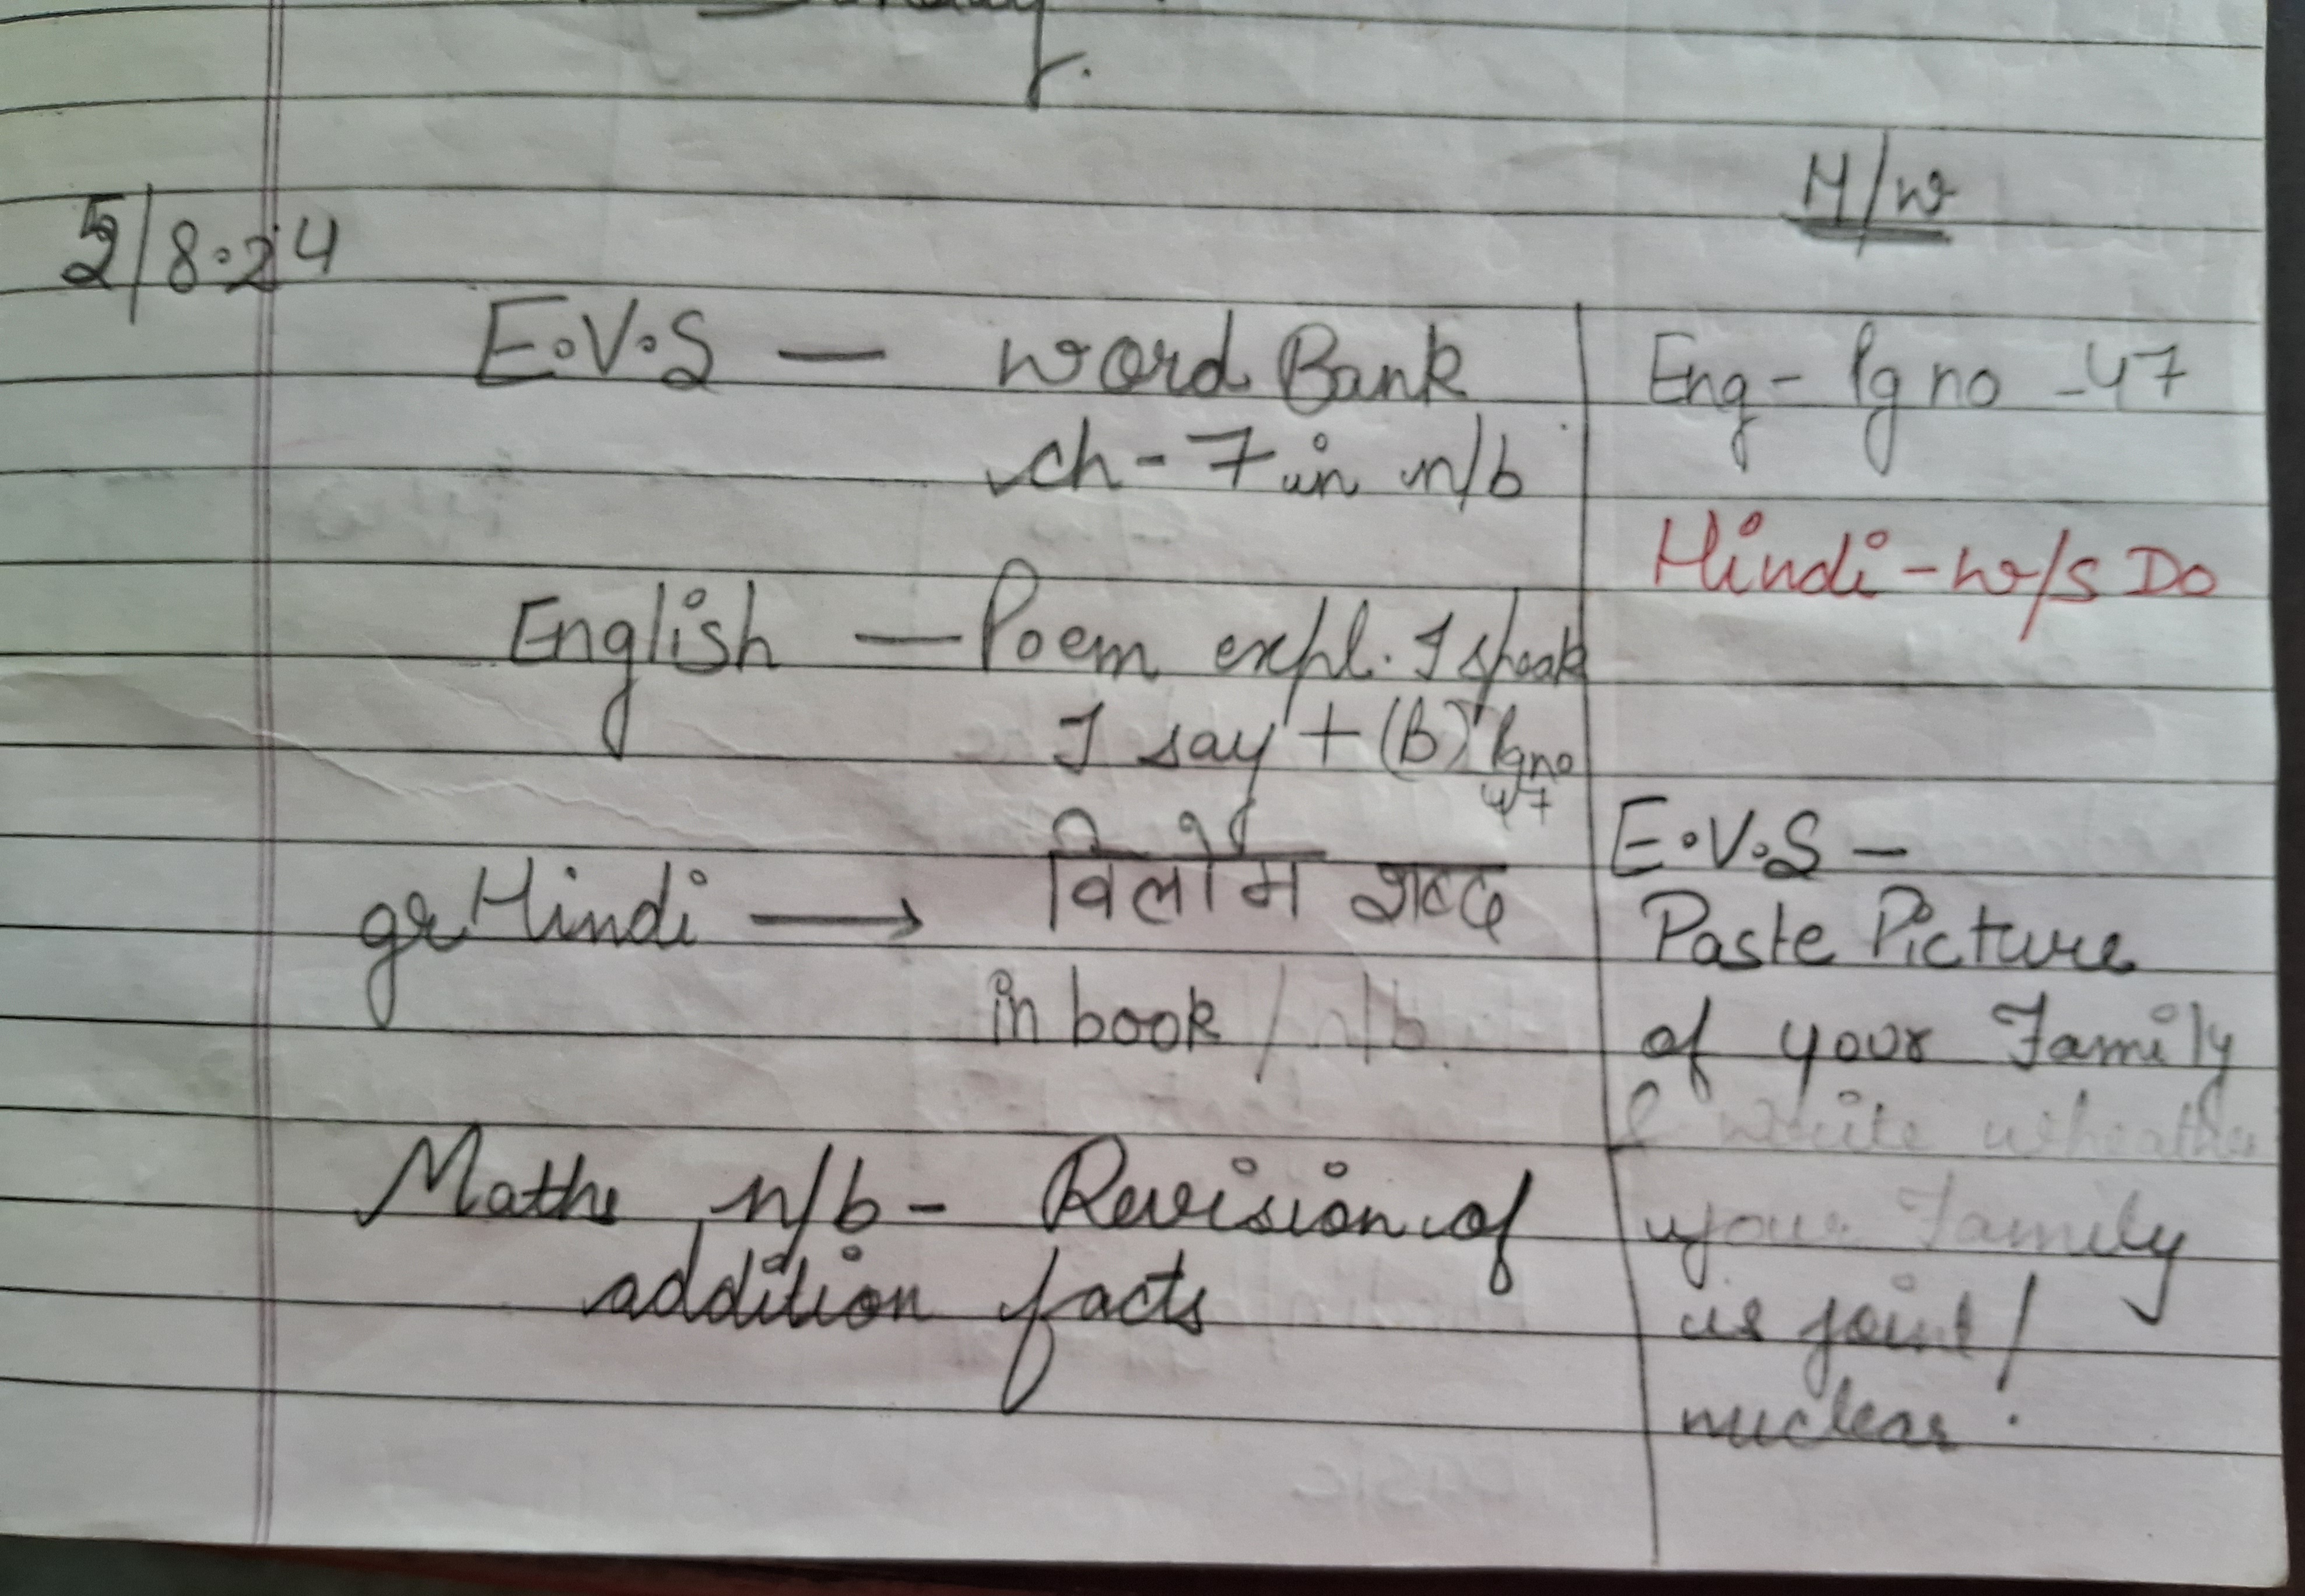 H/w
5/8.24
E.V.S — word Bank
ch - 7 in n/b
English — Poem expl. I speak
I say + (b) Pg no
47
gr Hindi → विलोम शब्द
in book / n/b
Maths n/b - Revision of
addition facts
Eng - Pg no - 47
Hindi - w/s Do
E.V.S —
Paste Picture
of your Family
& write wheather
your Family
is joint /
nuclear .